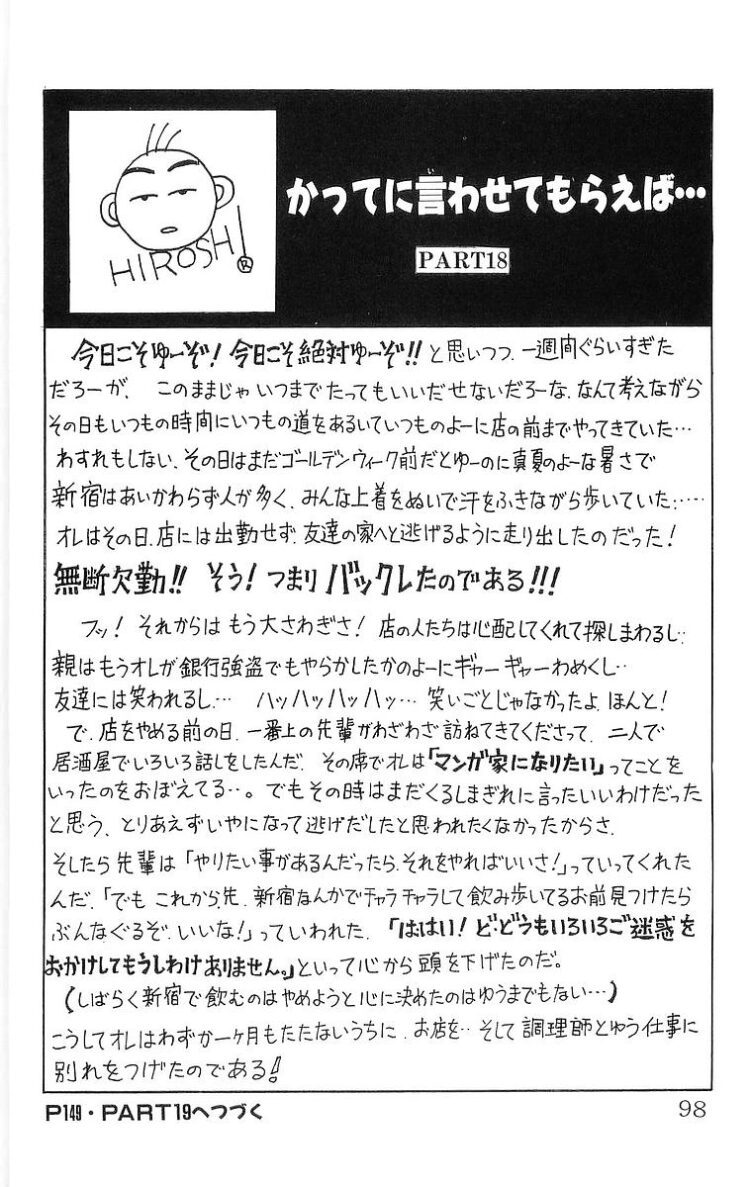 HIROSHI!
®
かってに言わせてもらえば…
い
PART18
今日こそゆーぞ!今日こそ絶対ゆーぞ!!と思いつつ、一週間ぐらいすぎた
だろーが、このままじゃいつまでたってもいいだせないだろーな、なんて考えながら
その日もいつもの時間にいつもの道をあるいていつものよーに店の前までやってきていた…
わすれもしない、その日はまだゴールデンウィーク前だとゆーのに真夏のよーな暑さで
新宿はあいかわらず人が多く、みんな上着をぬいで汗をふきながら歩いていた……
オレはその日、店には出勤せず、友達の家へと逃げるように走り出したのだった!
無断欠勤!!そう!つまりバックレたのである!!!
フッ!それからはもう大さわぎさ!店の人たちは心配してくれて探しまわるし‥
親はもうオレが銀行強盗でもやらかしたかのよーにギャーギャーわめくし‥
友達には笑われるし… ハッハッハッハッ…笑いごとじゃなかったよ、ほんと!
で、店をやめる前の日、一番上の先輩がわざわざ訪ねてきてくださって、二人で
居酒屋でいろいろ話しをしたんだ、その席でオレは「マンガ家になりたい」ってことを
いったのをおぼえてる‥。でもその時はまだくるしまぎれに言ったいいわけだった
と思う、とりあえずいやになって逃げだしたと思われたくなかったからさ、
そしたら先輩は「やりたい事があるんだったら、それをやればいいさ!」っていってくれた
んだ、「でもこれから先、新宿なんかでチャラチャラして飲み歩いてるお前見つけたら
ぶんなぐるぞ、いいな!」っていわれた、「ははい!ど・どうもいろいろご迷惑を
おかけしてもうしわけありません。」といって心から頭を下げたのだ。
(しばらく新宿で飲むのはやめようと心に決めたのはゆうまでもない…)
こうしてオレはわずか一ヶ月もたたないうちに、お店を‥そして調理師とゆう仕事に
別れをつげたのである!
P149・PART19へつづく
98